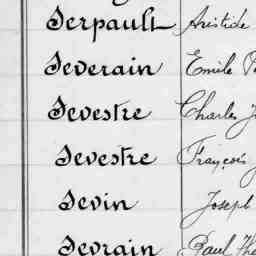 Serpault Aristide
Severain Emile
Sevestre Charles
Sevestre François
Sevin Joseph
Sevrain Paul